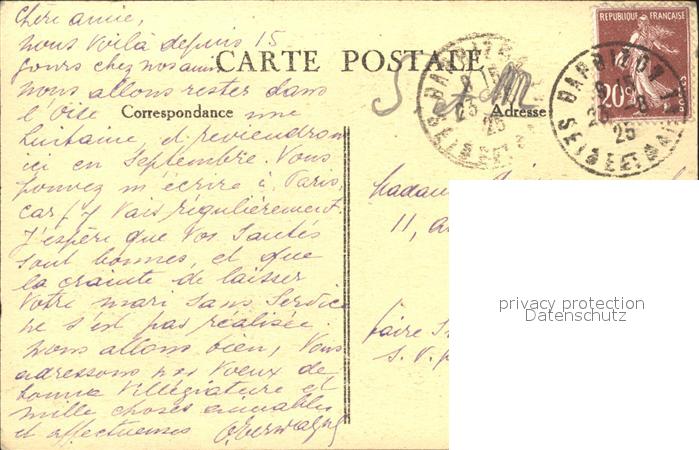 Chère amie,
nous voilà depuis 15
jours chez nos amis
nous allons rester dans
l'Oise une
huitaine, et reviendrons
ici en Septembre. Vous
pouvez m'écrire à Paris,
car j'y vais régulièrement.
J'espère que vos santés
sont bonnes, et que
la crainte de laisser
votre mari sans service
ne s'est pas réalisée.
nous allons bien, vous
adressons nos voeux de
bonne villégiature et
mille choses aimables
et affectueuses
CARTE POSTALE
Correspondance
Adresse
S et M
REPUBLIQUE FRANÇAISE
20c
POSTES
BARBIZON
25
SEINE ET MARNE
BARBIZON
25
SEINE ET MARNE
Madame
11, a
faire S
S. V. p
privacy protection
Datenschutz